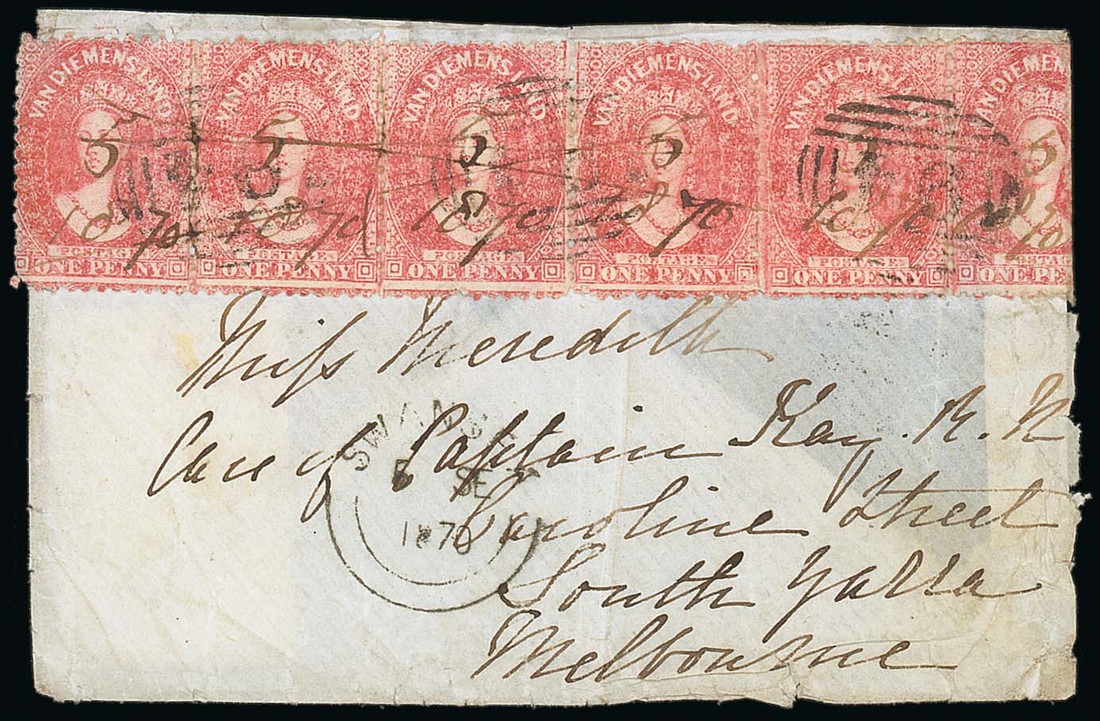 VAN DIEMENS LAND VAN DIEMENS LAND VAN DIEMENS LAND VAN DIEMENS LAND VAN DIEMENS LAND VAN DIEMENS
5 5 5 5 5
18 70 18 70 18 70 18 70 18 70 18 70
POSTAGE POSTAGE POSTAGE POSTAGE POSTAGE POSTA
ONE PENNY ONE PENNY ONE PENNY ONE PENNY ONE PENNY ONE PE
Miss Meredith
Care of Captain Kay. R. N
Caroline Street
South Yarra
Melbourne
SWANSEA
5 SE
1870